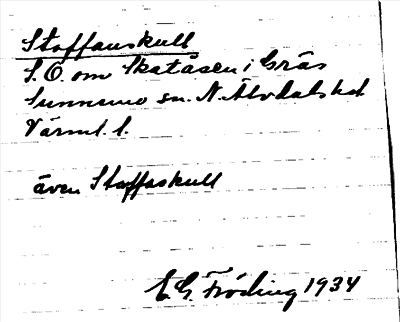 Staffanskull
S.O. om Skatåsen i Gräs
Sunnemo sn. N. Älvdals hd.
Värml. l.
även Staffaskull
E.G. Fröding 1934